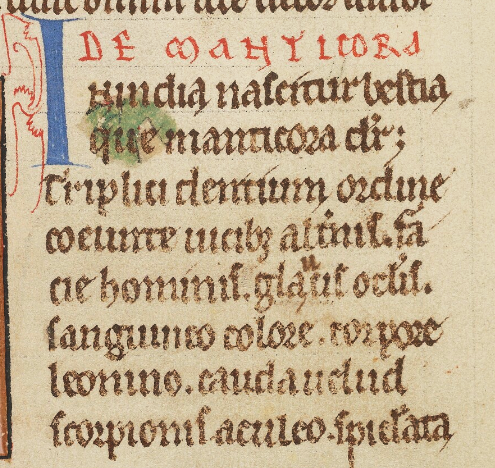 DE MANTICORA
In india nascitur bestia
que manticora dr̄;
Triplici dentium ordine
coeunte uicibꝫ alt̄nis. fa
cie hominis. glaucis oclis.
sanguineo colore. corpore
leonino. cauda uelud
scorpionis aculeo. spiculata